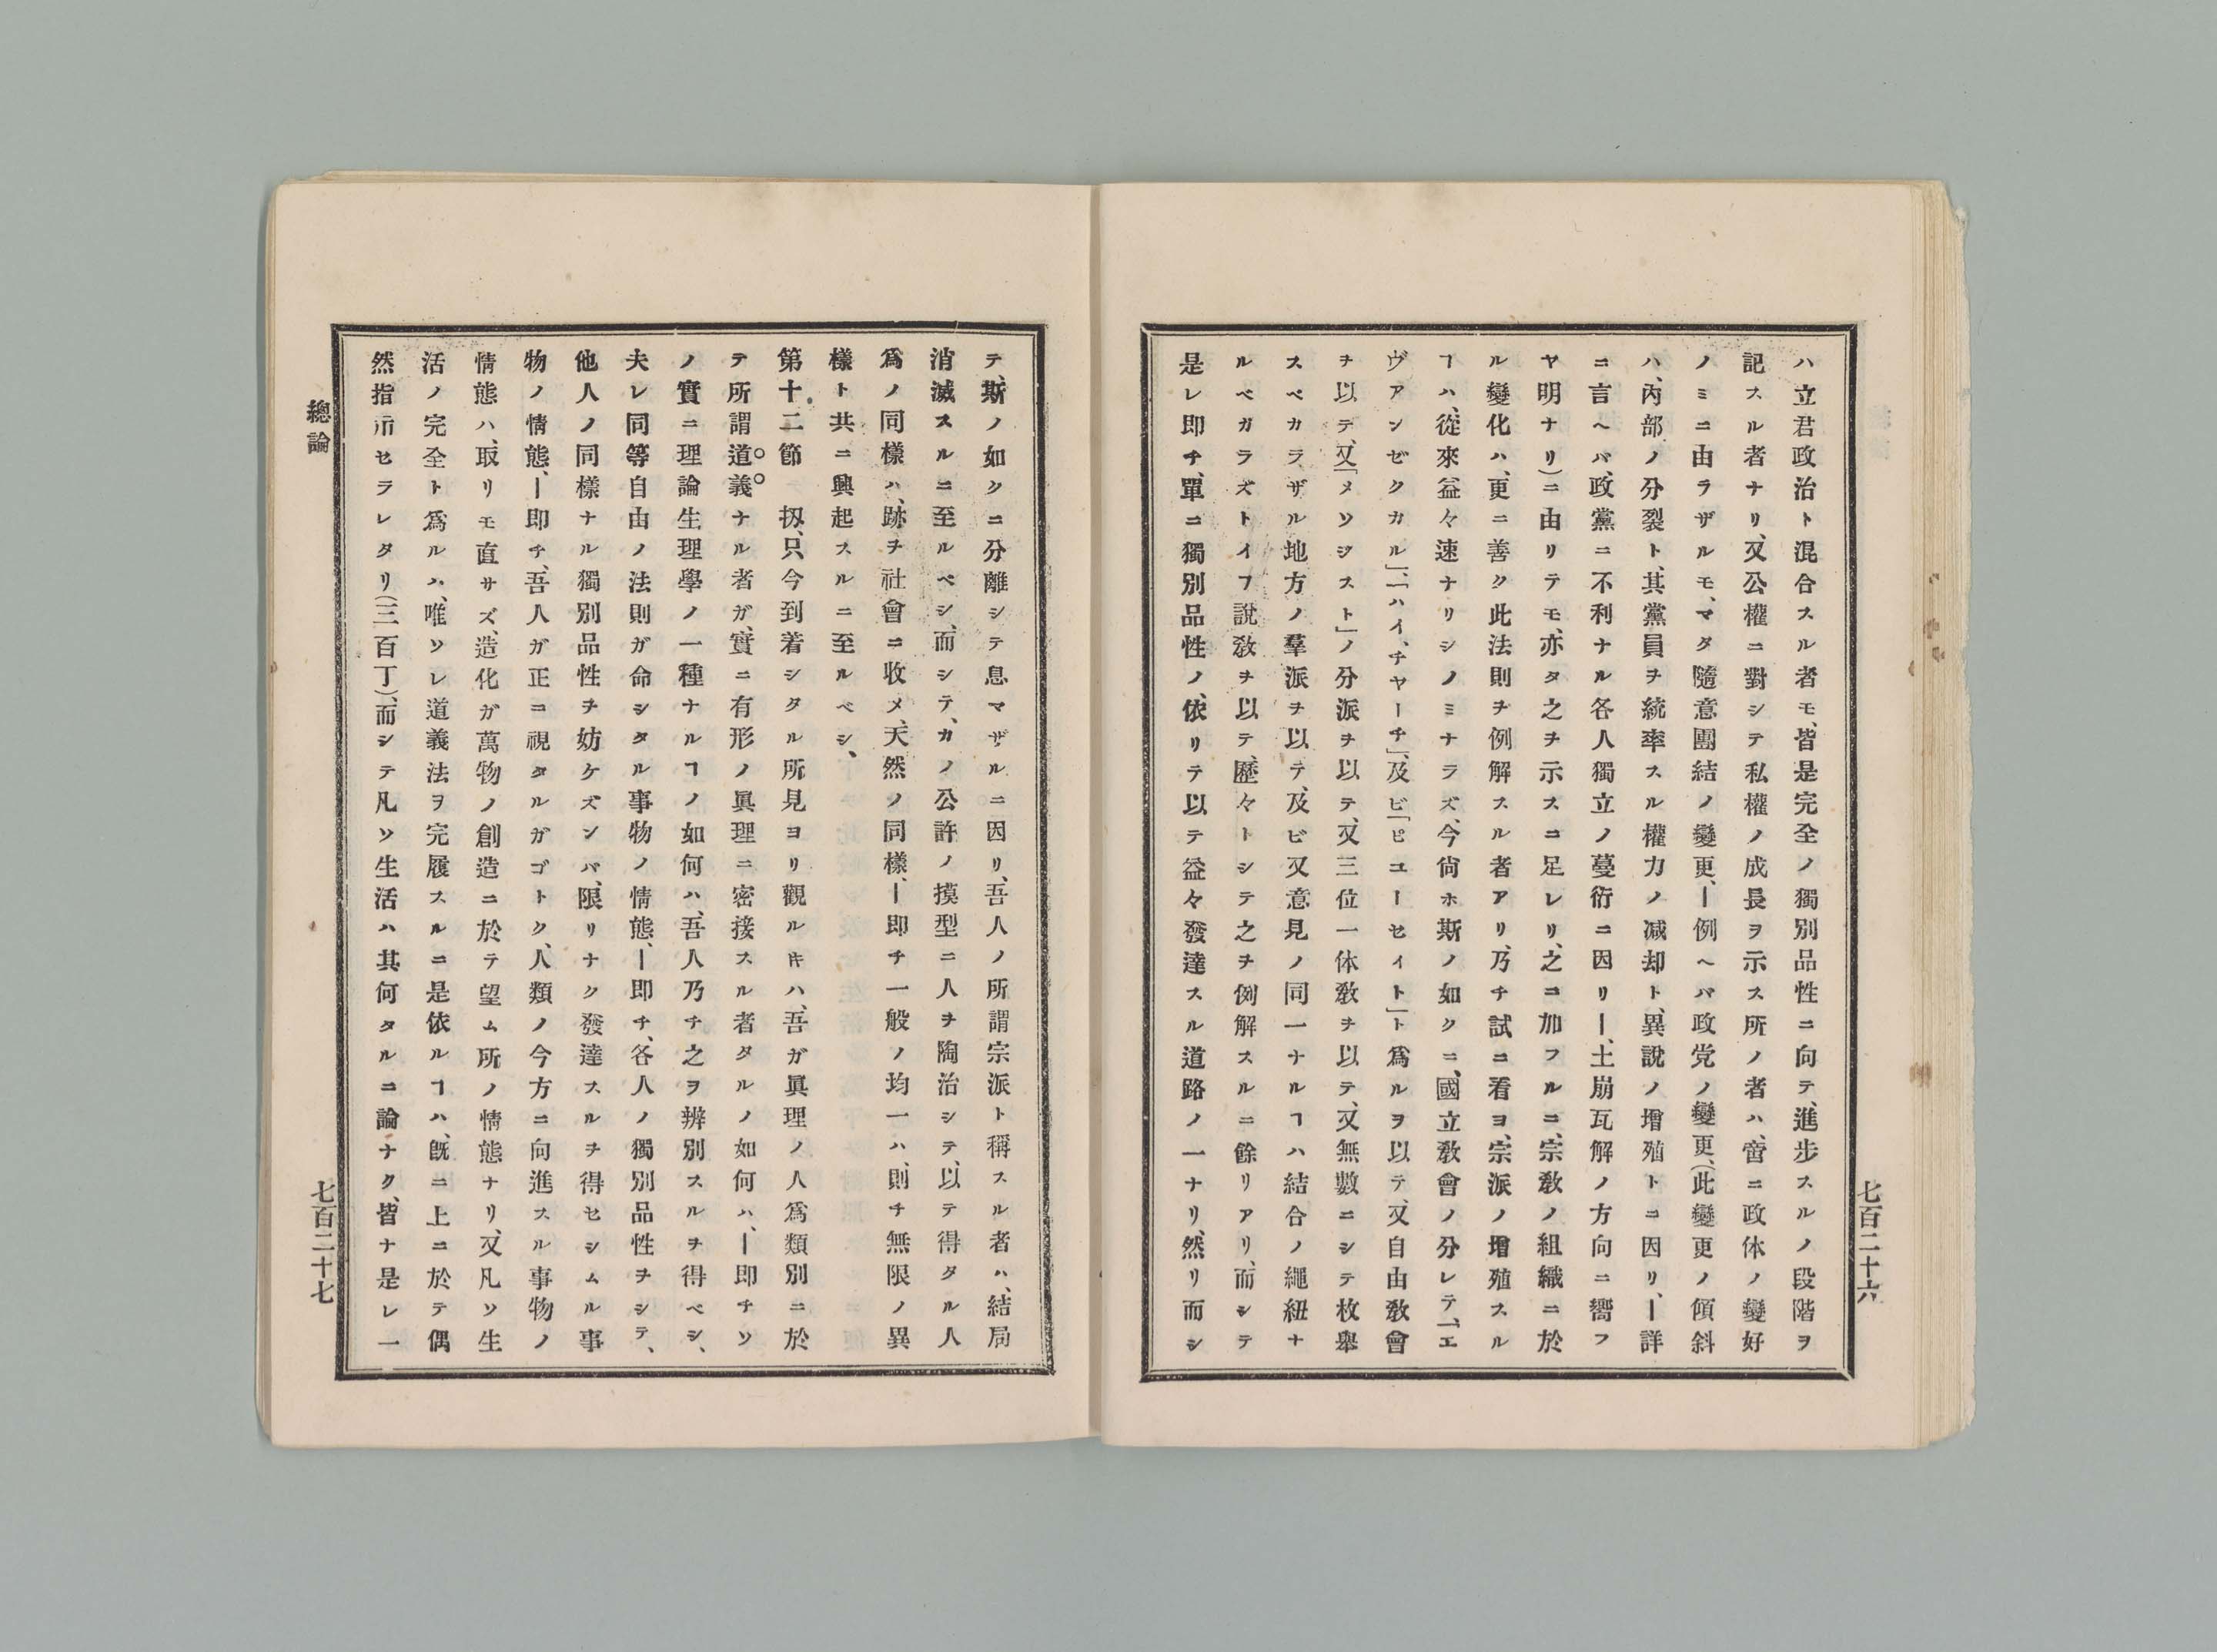 ハ立君政治ト混合スル者モ、皆是完全ノ獨別品性ニ向テ、進步スルノ段階ヲ
記スル者ナリ、又公權ニ對シテ私權ノ成長ヲ示ス所ノ者ハ、啻ニ政体ノ變好
ノミニ由ラザルモ、マタ隨意團結ノ變更、―例ヘバ政党ノ變更、(此變更ノ傾斜
ハ、內部ノ分裂ト、其黨員ヲ統率スル權力ノ减却ト、異說ノ增殖トニ因リ、―詳
ニ言ヘバ、政黨ニ不利ナル各人獨立ノ蔓衍ニ因リ―、土崩瓦解ノ方向ニ嚮フ
ヤ明ナリ)ニ由リテモ、亦タ之ヲ示スニ足レリ、之ニ加フルニ、宗敎ノ組織ニ於
ル變化ハ、更ニ善ク此法則ヲ例解スル者アリ、乃チ試ニ看ヨ、宗派ノ增殖スル
ヿハ、從來益々速ナリシノミナラズ、今尙ホ斯ノ如クニ、國立敎會ノ分レテ、「エ
ヴアンゼクカル」、「ハイ、チヤーチ」、及ビ「ピユーセイト」ト爲ルヲ以テ、又自由敎會
ヲ以テ、又「メソシスト」ノ分派ヲ以テ、又三位一体敎ヲ以テ、又無數ニシテ枚舉
スベカラザル地方ノ羣派ヲ以テ、及ビ又意見ノ同一ナルヿハ結合ノ繩紐ナ
ルベガラズトイフ說敎ヲ以テ、歷々トシテ之ヲ例解スルニ餘リアリ、而シテ
是レ即チ、單ニ獨別品性ノ、依リテ以テ益々發達スル道路ノ一ナリ、然リ而シ
七百二十六
テ、斯ノ如クニ分離シテ息マザルニ因リ、吾人ノ所謂宗派ト稱スル者ハ、結局
消滅スルニ至ルベシ、而シテ、カノ公許ノ摸型ニ人ヲ陶冶シテ、以テ得タル人
爲ノ同樣ハ、跡ヲ社會ニ收メ、天然ノ同樣、―即チ一般ノ均一ハ、則チ無限ノ異
樣ト共ニ興起スルニ至ルベシ、
第十二節　扨、只今到着シタル所見ヨリ觀ルキハ、吾ガ眞理ノ人爲類別ニ於
テ所謂道義ナル者ガ、實ニ有形ノ眞理ニ密接スル者タルノ如何ハ、―即チソ
ノ實ニ理論生理學ノ一種ナルヿノ如何ハ、吾人乃チ之ヲ辨別スルヲ得ベシ、
夫レ同等自由ノ法則ガ命シタル事物ノ情態、―即チ、各人ノ獨別品性ヲシテ、
他人ノ同樣ナル獨別品性ヲ妨ケズンバ、限リナク發達スルヲ得セシムル事
物ノ情態、―即チ、吾人ガ正ニ視タルガゴトク、人類ノ今方ニ向進スル事物ノ
情態ハ、取リモ直サズ、造化ガ萬物ノ創造ニ於テ望ム所ノ情態ナリ、又凡ソ生
活ノ完全ト爲ルハ、唯ソレ道義法ヲ完履スルニ是依ルヿハ、旣ニ上ニ於テ偶
然指示セラレタリ(三百丁)、而シテ凡ソ生活ハ其何タルニ論ナク、皆ナ是レ一
總論
七百二十七